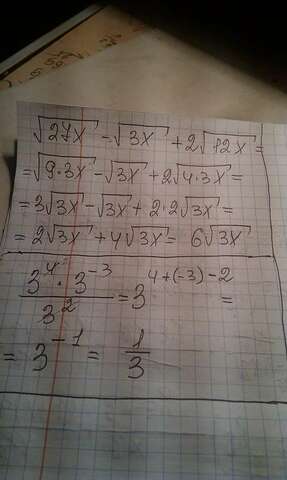 √27x - √3x + 2√12x =
= √9·3x - √3x + 2√4·3x =
= 3√3x - √3x + 2·2√3x =
= 2√3x + 4√3x = 6√3x
3⁴·3⁻³/3² = 3⁴⁺⁽⁻³⁾⁻² =
= 3⁻¹ = 1/3